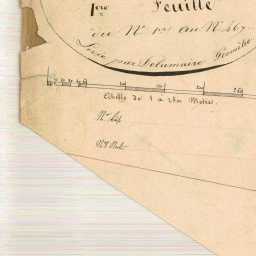 1ere Feuille
du N° 1er au N° 467.
Levée par Delamaire Géomètre
Echelle de 1 à 2500 Métres.